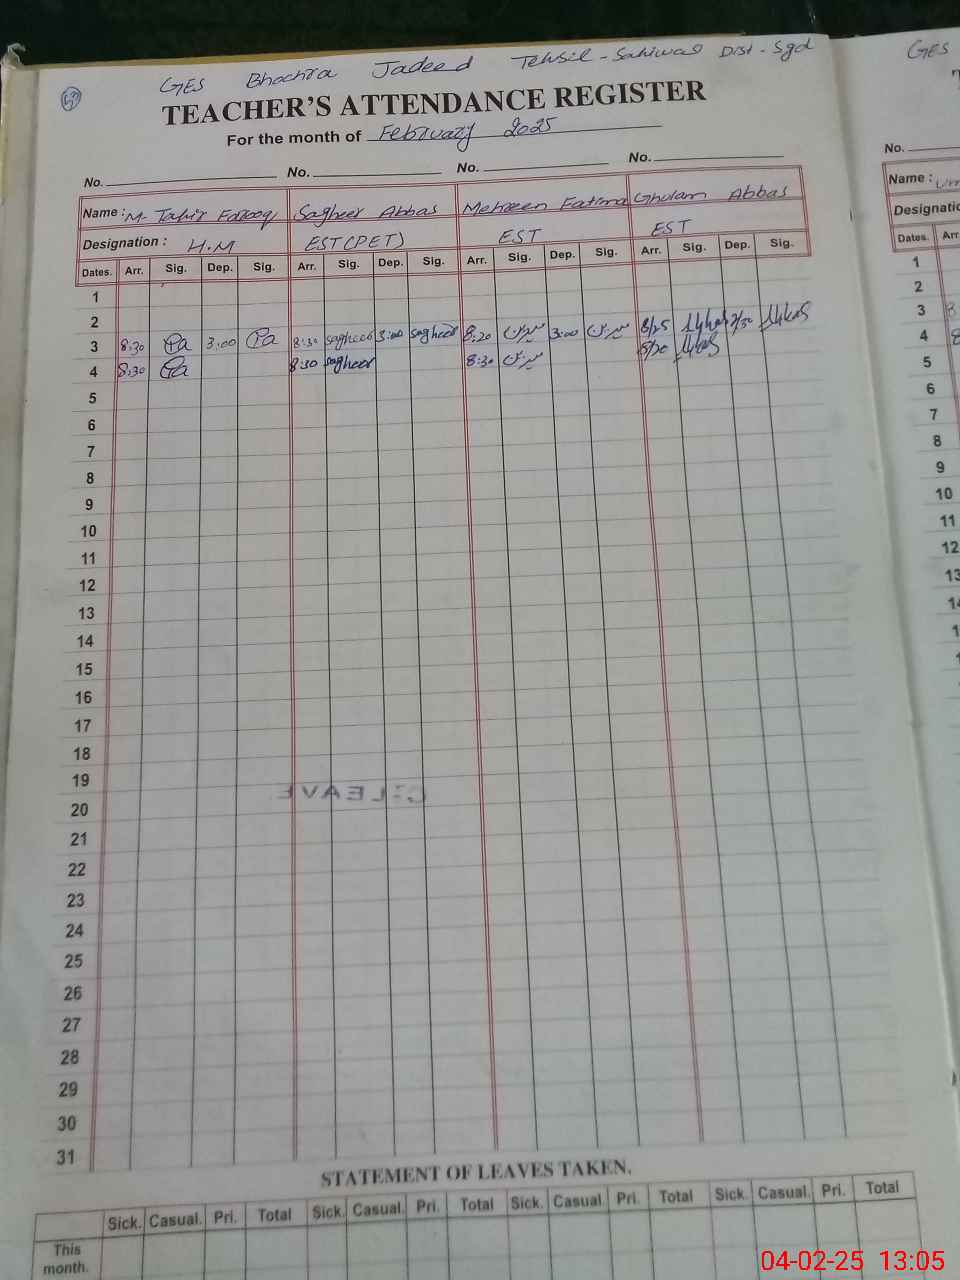 GES Bhochra Jadeed Tehsil-Sahiwal Dist-Sgd
TEACHER'S ATTENDANCE REGISTER
For the month of February 2025
No. No. No. No.
Name : M. Tahir Farooq Sagheer Abbas Mehreen Fatima Ghulam Abbas
Designation : H.M EST(PET) EST EST
Dates. Arr. Sig. Dep. Sig. Arr. Sig. Dep. Sig. Arr. Sig. Dep. Sig. Arr. Sig. Dep. Sig.
1
2
3 8:30 3:00 8:30 sagheer 3:00 sagheer 8:20 3:00 8/25
4 8:30 8:30 sagheer 8:30 8/20
5
6
7
8
9
10
11
12
13
14
15
16
17
18
19
C-LEAVE
20
21
22
23
24
25
26
27
28
29
30
31
STATEMENT OF LEAVES TAKEN.
Sick. Casual. Pri. Total Sick. Casual. Pri. Total Sick. Casual. Pri. Total Sick. Casual. Pri. Total
This month.
GES
No.
Name :
Designatio
Dates. Arr.
1
2
3 8
4 8
5
6
7
8
9
10
11
12
13
04-02-25 13:05